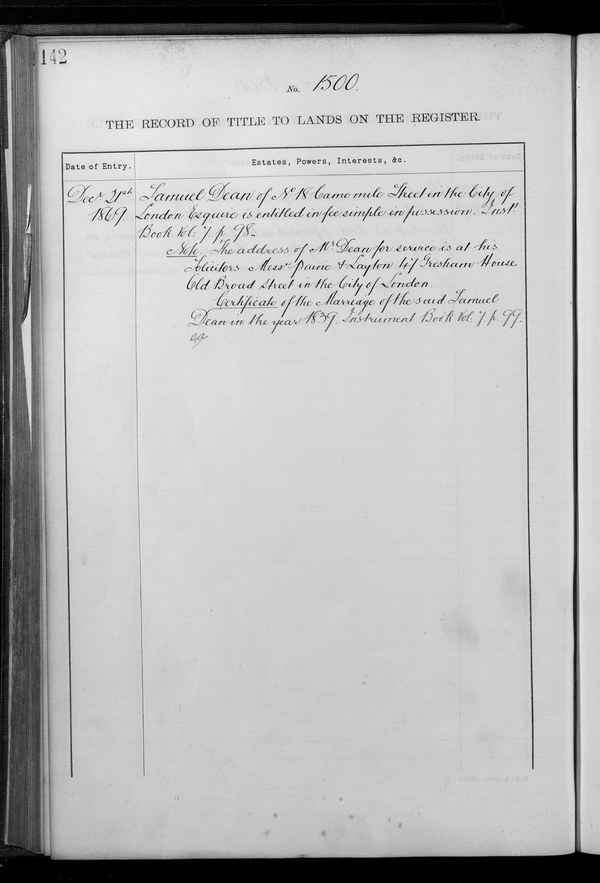 142
No. 1500.
THE RECORD OF TITLE TO LANDS ON THE REGISTER.
Date of Entry.
Estates, Powers, Interests, &c.
Decr 21st
1869
Samuel Dean of No 18 Camomile Street in the City of
London Esquire is entitled in fee simple in possession. Inst
Book Vol. 7 p. 98.
Note. The address of Mr Dean for service is at his
Solicitors Messrs Paine & Layton 47 Gresham House
Old Broad Street in the City of London.
Certificate of the Marriage of the said Samuel
Dean in the year 1839. Instrument Book Vol. 7 p. 99.